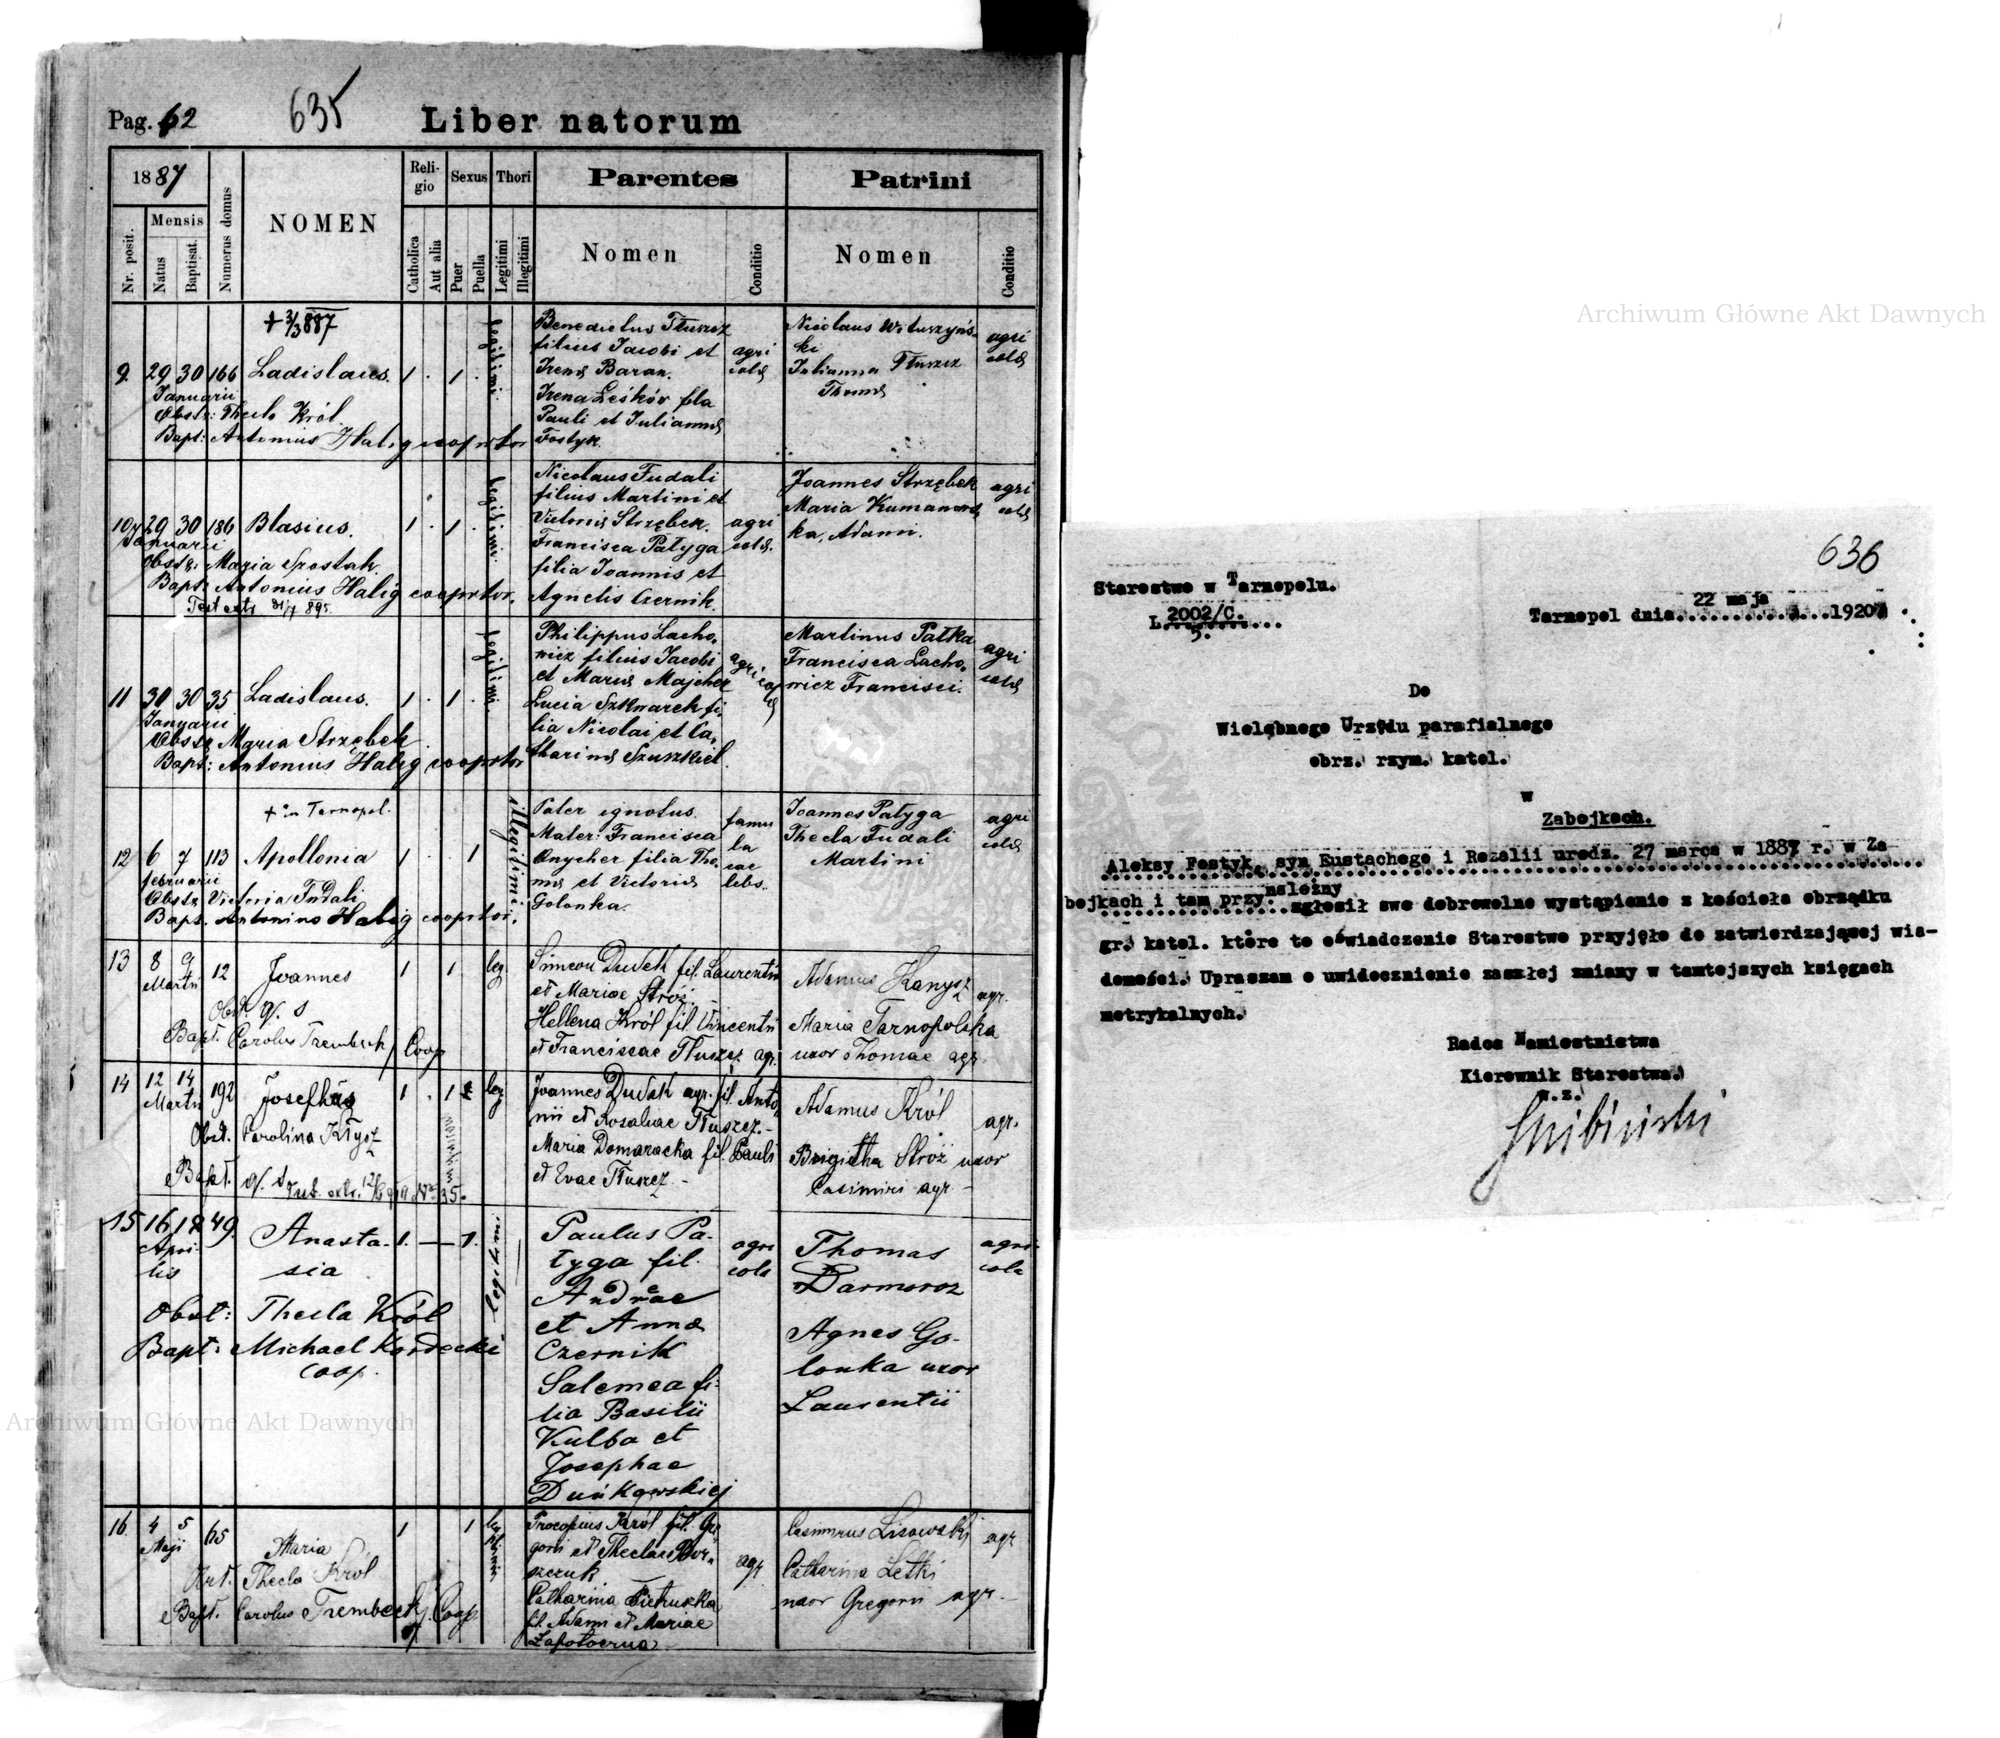 Pag. 62
635
Liber natorum
1887
Nr. posit.
Mensis
Natus
Baptisat.
Numerus domus
NOMEN
Religio
Catholica
Aut alia
Sexus
Puer
Puella
Thori
Legitimi
Illegitimi
Parentes
Nomen
Conditio
Patrini
Nomen
Conditio
+ 3/3 887
9. 29 30 166 Ladislaus. 1 . 1 .
Januarii
Obstr: Thecla Król.
Bapt: Antonius Halig cooprtor
legitimi.
Benedictus Tłuszcz
filius Jacobi et
Irenæ Baran.
Irena Leśków fila
Pauli et Juliannæ
Fostyk.
agri
colæ
Nicolaus Wituszyńs-
ki
Julianna Tłuszcz
Thomæ
agri
colæ
10 29 30 186 Blasius. 1 . 1 .
Januarii
Obstr: Maria Szostak.
Bapt: Antonius Halig cooprtor.
Test extr 895.
legitimi.
Nicolaus Fudali
filius Martini et
Victoriæ Strzębek.
Francisca Pałyga
filia Joannis et
Agnetis Czernik.
agri
colæ.
Joannes Strzębek
Maria Kumanows
ka, Adami.
agri
colæ
11 30 30 35 Ladislaus. 1 . 1 .
Januarii
Obstr Maria Strzębek
Bapt: Antonius Halig cooprtor
legitimi.
Philippus Lacho-
wicz filius Jacobi
et Mariæ Majcher
Lucia Szkwarek fi-
lia Nicolai et Ca-
tharinæ Szuszkiel.
agricolæ
Martinus Pałka
Francisca Lacho-
wicz Francisci.
agri
colæ
+ in Tarnopol.
12 6 7 113 Apollonia 1 . 1
februarii
Obstr Victoria Fudali
Bapt. Antonius Halig cooprtor.
illegitimi
Pater ignotus.
Mater: Francisca
Onycher filia Tho-
mæ et Victoriæ
Golonka.
famu
la
cae
lebs.
Joannes Pałyga
Thecla Fudali
Martini
agri
colæ
13 8 9 12 Joannes 1 1 leg
Martii
Obst q. s
Bapt. Carolus Trembecki Coop
Simeon Dudek fil. Laurentii
et Mariae Stróż. -
Hellena Król fil Vincentii
et Franciscae Tłuszcz agr.
Adamus Kanysz agr.
Maria Tarnopolska
uxor Thomae agr.
14 12 14 192 Josephus 1 . 1 leg
Martii
Obst. Carolina Kłysz
Bapt. q. s
Joannes Dudek agr. fil. Anto-
nii et Rosaliae Tłuszcz. -
Maria Domaracka fil. Pauli
et Evae Tłuszcz -
Adamus Król agr.
Brigitha Stróż uxor
Casimiri agr -
15 16 18 49. Anasta- 1. — 1.
Apri- sia
lis
Obst: Thecla Król
Bapt: Michael Kordecki
coop.
legitimi
Paulus Pa-
łyga fil.
Andreae
et Annæ
Czernik
Salomea fi-
lia Basilii
Kulba et
Josephae
Duńkowskiej
agri
cola
Thomas
Darmoroz
Agnes Go-
lonka uxor
Laurentii
agri-
cola
16. 4 5 65 Maria 1 1
Maji
Obst. Thecla Król
Bapt. Carolus Trembecki Coop
Procopius Król fil. Gre-
gorii et Theclae Bor-
szczuk
Catharina Pietruszka
fil. Adami et Mariae
agr
Casimirus Lisowski agr
Catharina Letki
uxor Gregorii agr. -
636
Starostwo w Tarnopolu.
L. 2002/C.
5.
Tarnopol dnia 22 maja 1920
Do
Wielebnego Urzędu parafialnego
obrz. rzym. katol.
w
Zabojkach.
Aleksy Fostyk, syn Eustachego i Rozalii urodz. 27 marca w 1887 r. w Za
bojkach i tam przynależny zgłosił swe dobrowolne wystąpienie z kościoła obrządku
gr. katol. które to oświadczenie Starostwo przyjęło do zatwierdzającej wia-
domości. Upraszam o uwidocznienie zaszłej zmiany w tamtejszych księgach
metrykalnych.
Radca Namiestnictwa
Kierownik Starostwa.
w.z.
Archiwum Główne Akt Dawnych
Archiwum Główne Akt Dawnych